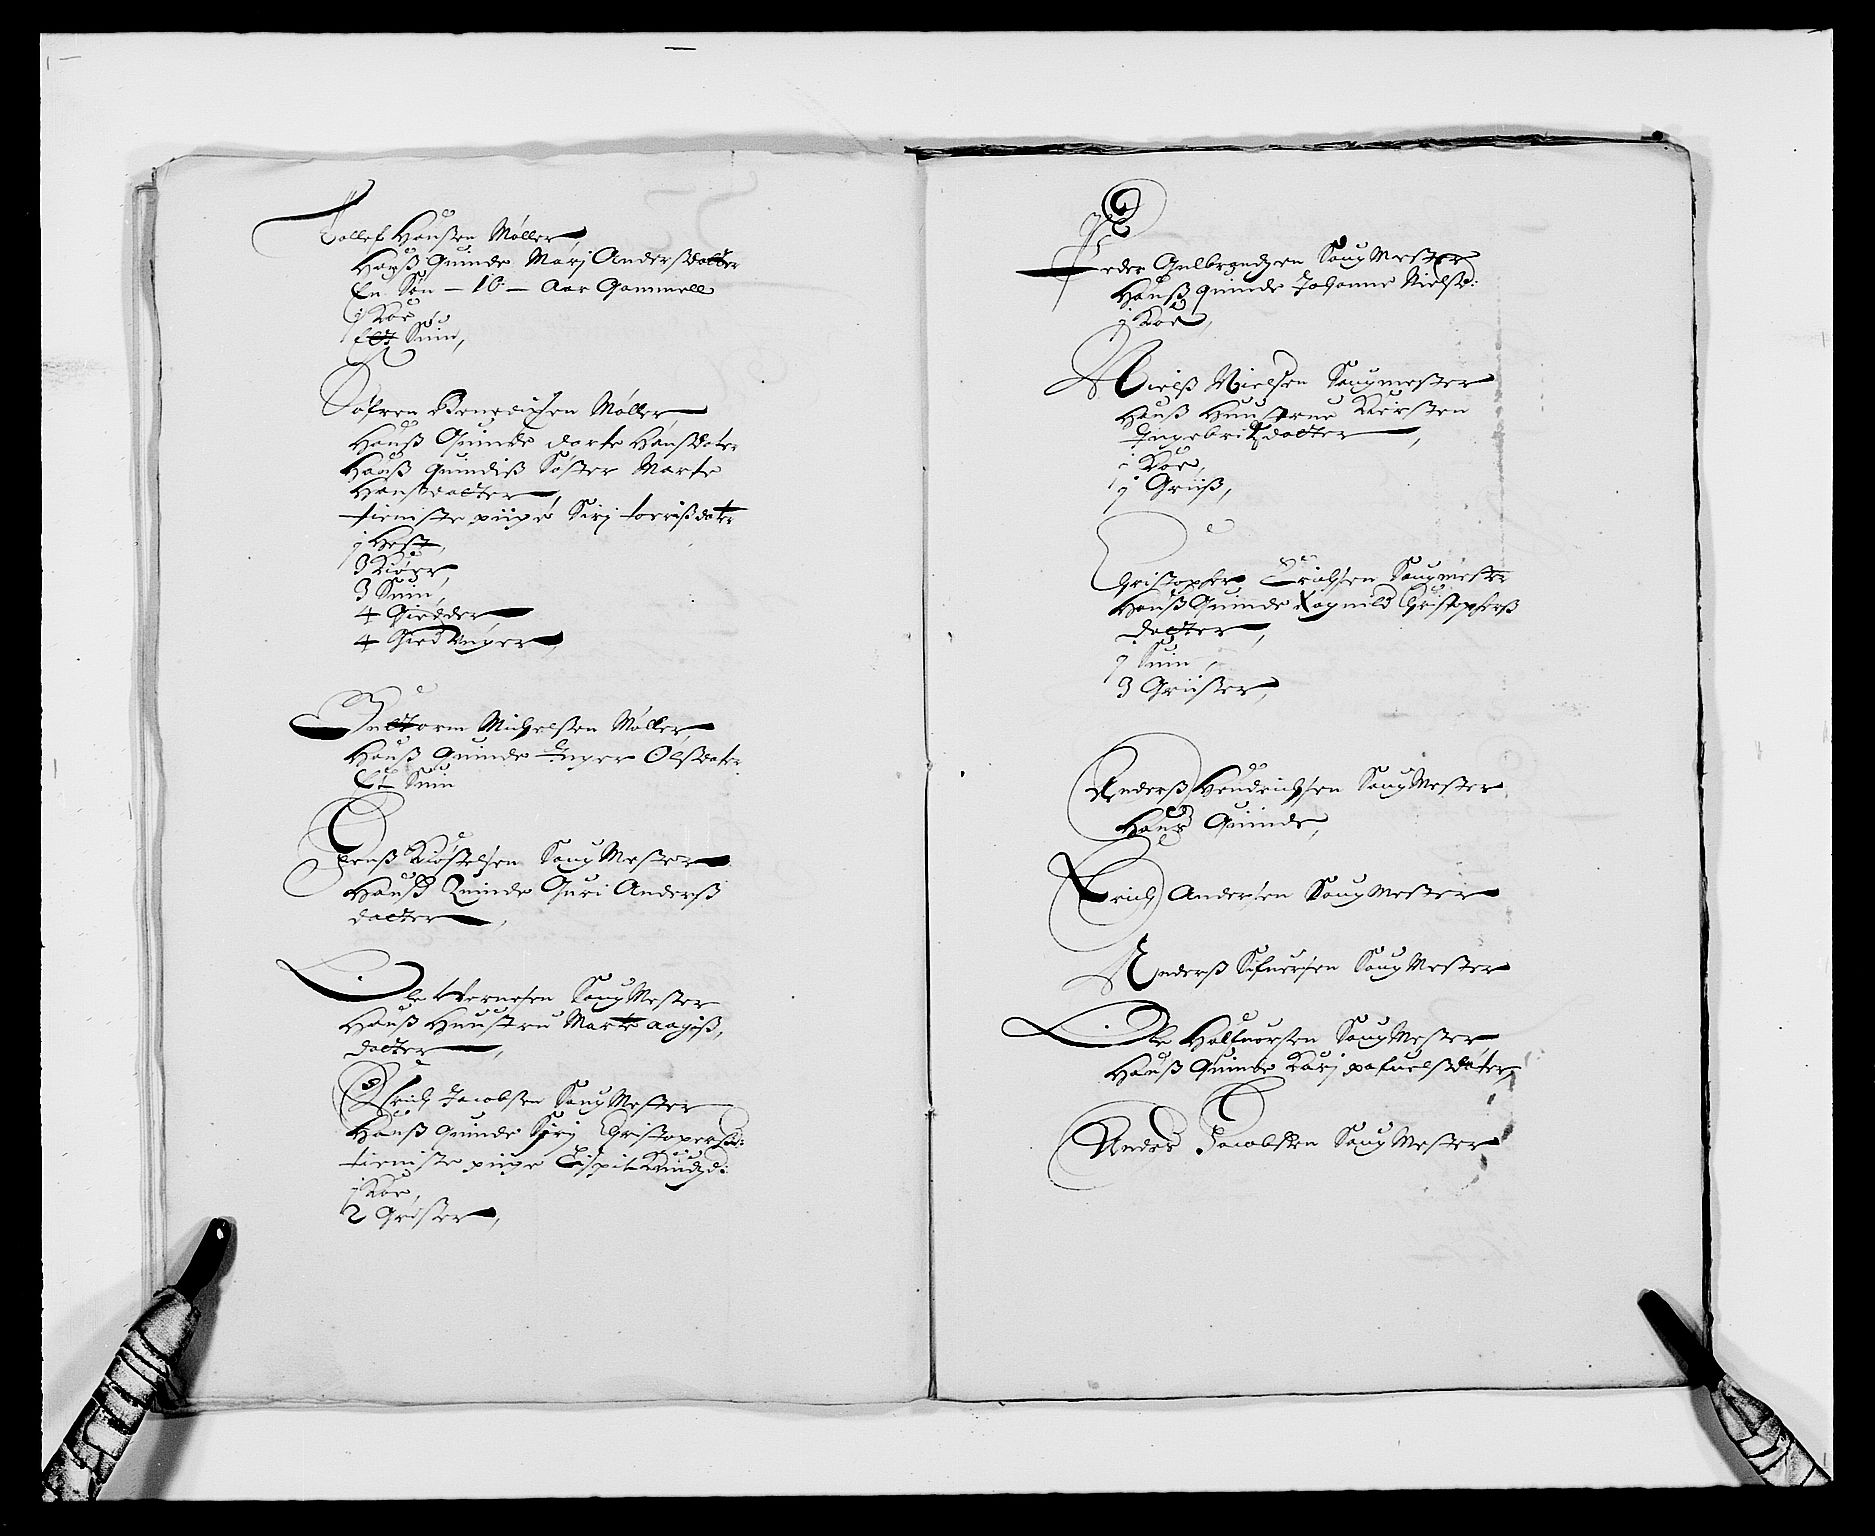 Tollef Hansen Møller,
Hanß Quinde Marj Andersdatter
En Søn - 10 - Aar Gammell
j Koe
Ett Suin,
Søfren Benedixsen Møller,
Hanß Quinde dorte Hansdater
Hanß quindiß Søster Marte
Hansdatter,
tieniste piige Sirj torrißdater
j Hest,
3 Kiøer,
3 Suin,
4 Giedder,
4 Gied Unger,
Guttorm Michelsen Møller,
Hanß Quinde Inger Olsdater
Et Suin
Jenß Kiøstelsen Saug Mester
Hanß Quinde Guri Anderß
datter,
Ole Wernesen Saug Mester
Hanß Huustru Marte aagiß,
datter,
Erich Jacobsen Saug Mester
Hanß quinde Syrj Christopersd:
tieniste piige Eispit Knudzd:
j Koe,
2 Griser,
Peder Gulbrandzen Saug Mester
Hanß quinde Johanne Nielsd:
j Koe,
Nielß Nielsen Saugmester
Hanß Huustrue Kiersten
Ingebritzdatter,
j Koe,
j Griiß,
Christopher Erichsen Saugmester
Hanß Quinde Ragnild Christopherß
datter,
j Suin,
3 Griiser,
Anderß Hendrichsen Saug Mester
Hans Quinde,
Erich Andersen Saug Mester
Anderß Sifuersen Saug Mester
Ole Halfuorsen Saug Mester,
Hanß Quinde Karj pofuelsdater,
Anders Jacobsen Saug Mester